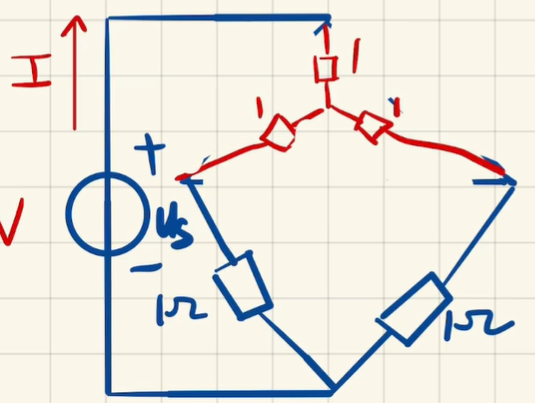 I
1
1
1
+
V
Us
-
1Ω
1Ω